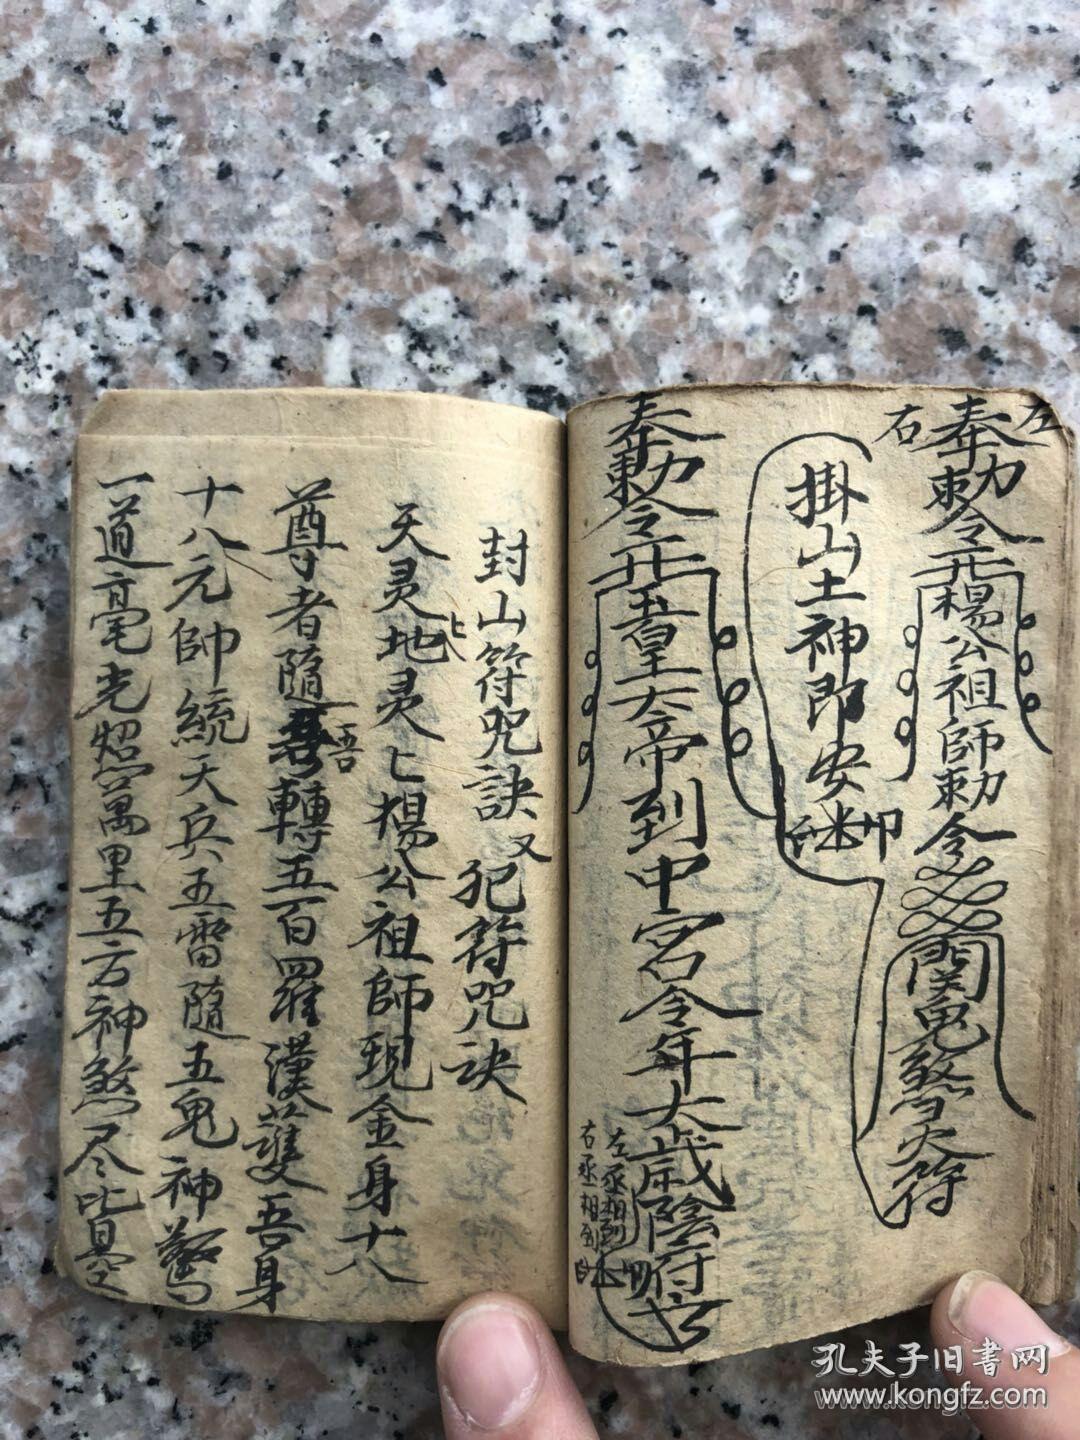 左
右
奉勅令楊公祖師勅令關鬼煞大符
掛山土神即安
奉勅令玉皇大帝到中宮今年太歲陰府
左丞相到
右丞相到
封山符咒訣又犯符咒訣
天灵地灵上楊公祖師現金身十八
尊者隨吾轉五百羅漢護吾身
十八元帥統天兵五雷隨五鬼神驚
一道毫光照萬里五方神煞尽皆空
孔夫子旧書网
www.kongfz.com